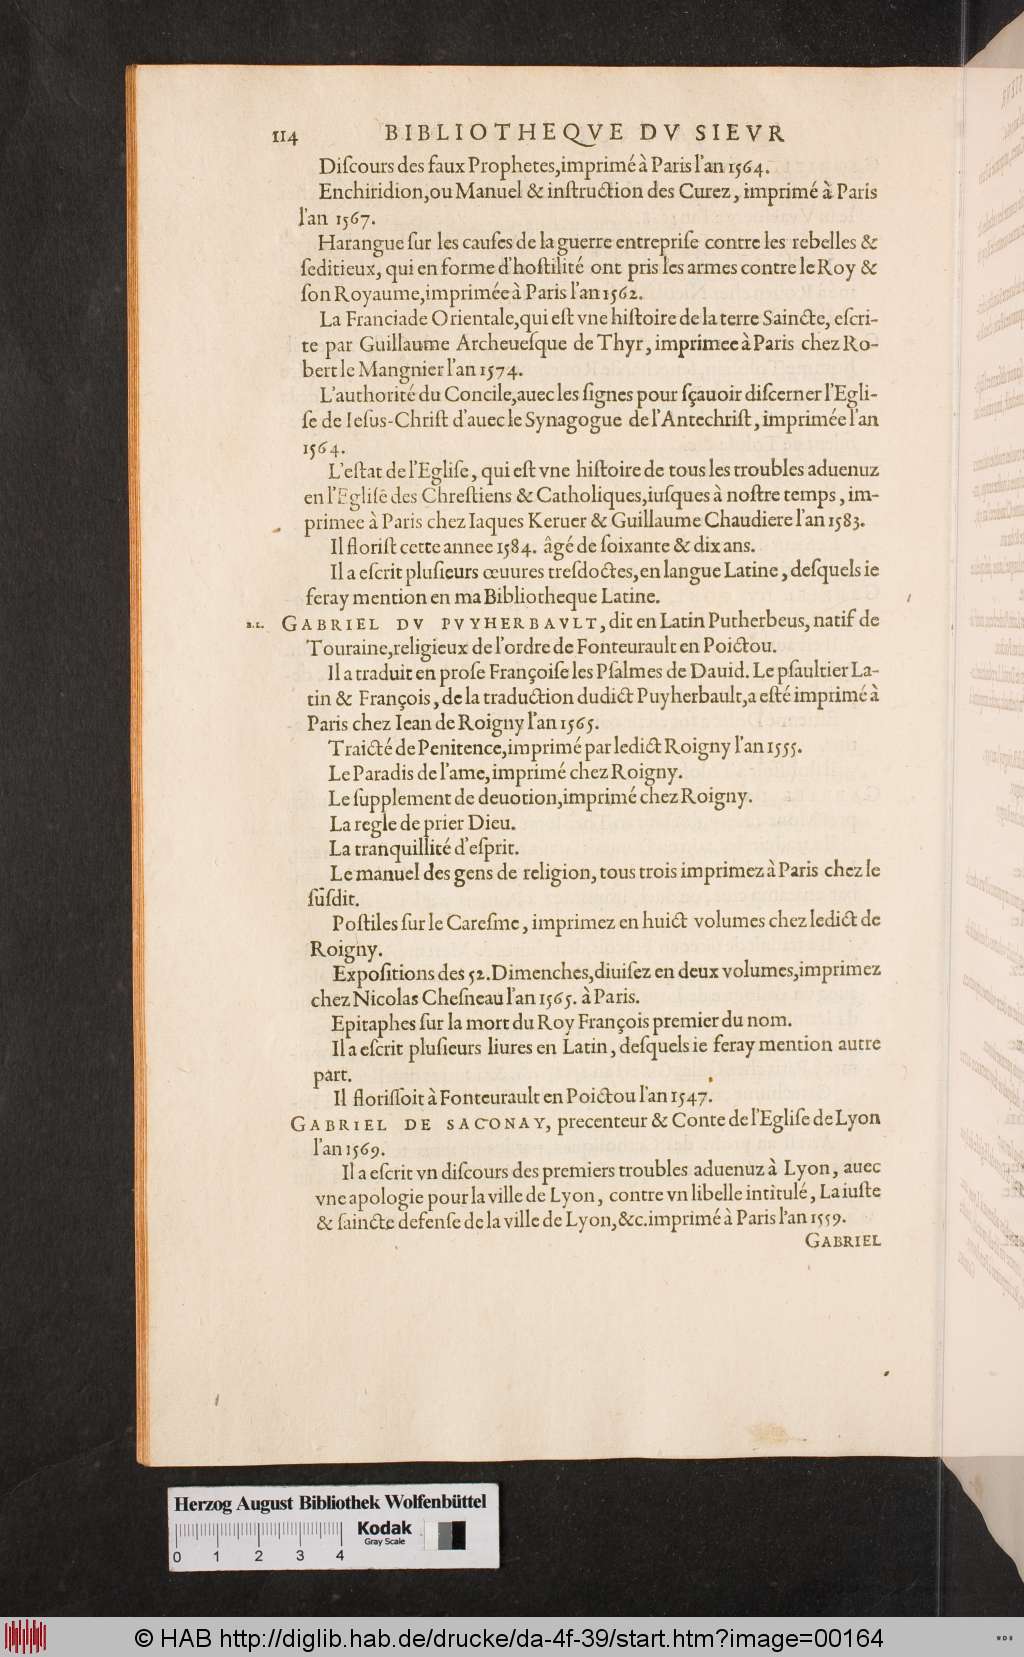 114 BIBLIOTHEQVE DV SIEVR
Diſcours des faux Prophetes, imprimé à Paris l'an 1564.
Enchiridion, ou Manuel & inſtruction des Curez, imprimé à Paris
l'an 1567.
Harangue ſur les cauſes de la guerre entrepriſe contre les rebelles &
ſeditieux, qui en forme d'hoſtilité ont pris les armes contre le Roy &
ſon Royaume, imprimée à Paris l'an 1562.
La Franciade Orientale, qui eſt vne hiſtoire de la terre Saincte, eſcri-
te par Guillaume Archeueſque de Thyr, imprimee à Paris chez Ro-
bert le Mangnier l'an 1574.
L'authorité du Concile, auec les ſignes pour ſçauoir diſcerner l'Egli-
ſe de Ieſus-Chriſt d'auec le Synagogue de l'Antechriſt, imprimée l'an
1564.
L'eſtat de l'Egliſe, qui eſt vne hiſtoire de tous les troubles aduenuz
en l'Egliſe des Chreſtiens & Catholiques, iuſques à noſtre temps, im-
primee à Paris chez Iaques Keruer & Guillaume Chaudiere l'an 1583.
Il floriſt cette annee 1584. âgé de ſoixante & dix ans.
Il a eſcrit pluſieurs œuures treſdoctes, en langue Latine, deſquels ie
feray mention en ma Bibliotheque Latine.
B.L. GABRIEL DV PVYHERBAVLT, dit en Latin Putherbeus, natif de
Touraine, religieux de l'ordre de Fonteurault en Poictou.
Il a traduit en proſe Françoiſe les Pſalmes de Dauid. Le pſaultier La-
tin & François, de la traduction dudict Puyherbault, a eſté imprimé à
Paris chez Iean de Roigny l'an 1565.
Traicté de Penitence, imprimé par ledict Roigny l'an 1555.
Le Paradis de l'ame, imprimé chez Roigny.
Le ſupplement de deuotion, imprimé chez Roigny.
La regle de prier Dieu.
La tranquillité d'eſprit.
Le manuel des gens de religion, tous trois imprimez à Paris chez le
ſuſdit.
Poſtiles ſur le Careſme, imprimez en huict volumes chez ledict de
Roigny.
Expoſitions des 52. Dimenches, diuiſez en deux volumes, imprimez
chez Nicolas Cheſneau l'an 1565. à Paris.
Epitaphes ſur la mort du Roy François premier du nom.
Il a eſcrit pluſieurs liures en Latin, deſquels ie feray mention autre
part.
Il floriſſoit à Fonteurault en Poictou l'an 1547.
GABRIEL DE SACONAY, precenteur & Conte de l'Egliſe de Lyon
l'an 1569.
Il a eſcrit vn diſcours des premiers troubles aduenuz à Lyon, auec
vne apologie pour la ville de Lyon, contre vn libelle intitulé, La iuſte
& ſaincte defenſe de la ville de Lyon, &c. imprimé à Paris l'an 1559.
GABRIEL
Herzog August Bibliothek Wolfenbüttel
Kodak
Gray Scale
0 1 2 3 4
© HAB http://diglib.hab.de/drucke/da-4f-39/start.htm?image=00164